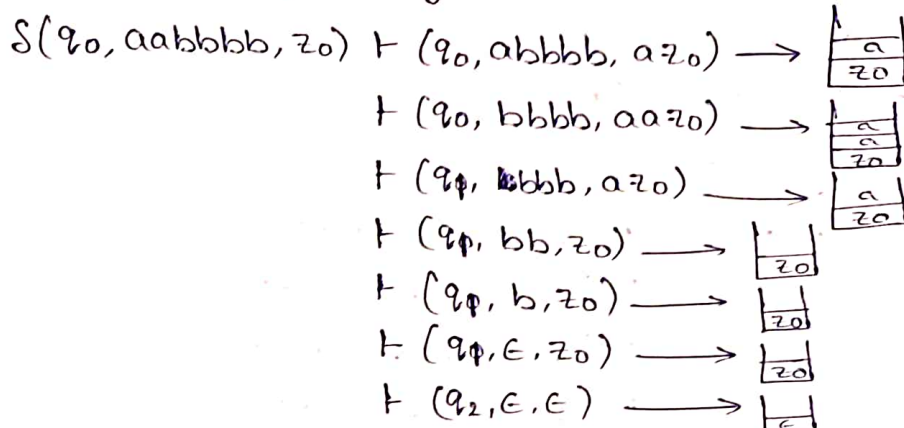 δ(q0, aabbbb, z0) ⊢ (q0, abbbb, az0) → a z0
⊢ (q0, bbbb, aaz0) → a a z0
⊢ (q1, bbb, az0) → a z0
⊢ (q1, bb, z0) → z0
⊢ (q1, b, z0) → z0
⊢ (q1, ϵ, z0) → z0
⊢ (q2, ϵ, ϵ) → ϵ